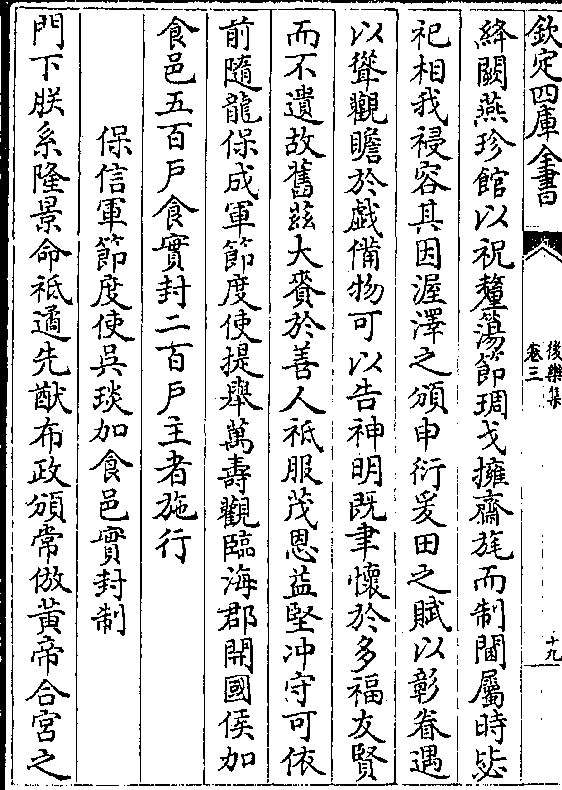 欽定四庫全書
後樂集
卷三
十九
絳闕燕珍館以祝釐蕩節琱戈擁齋旄而制閫屬時毖
祀相我祲容其因渥澤之頒申衍爰田之賦以彰眷遇
以聳觀瞻於戲備物可以告神明既聿懷於多福友賢
而不遺故舊兹大賚於善人祗服茂恩益堅冲守可依
前隨龍保成軍節度使提舉萬壽觀臨海郡開國侯加
食邑五百戸食實封二百戸主者施行
保信軍節度使吳琰加食邑實封制
門下朕系隆景命祗遹先猷布政頒常倣黄帝合宮之